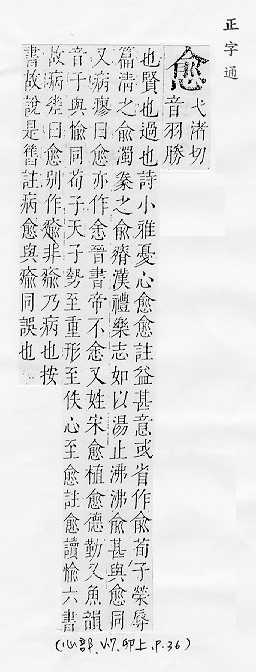 正字通
愈
弋渚切
音羽勝
也賢也過也詩小雅憂心愈愈註益甚意或省作俞荀子榮辱
篇清之俞濁豢之俞瘠漢禮樂志如以湯止沸沸俞甚與愈同
又病瘳曰愈亦作悆晉書帝不悆又姓宋愈植愈德勤又魚韻
音于與愉同荀子天子勢至重形至佚心至愈註愈讀愉六書
故病瘳曰愈别作瘉非瘉乃病也按
書故說是舊註病愈與瘉同誤也
(心部、V.7、卯上、P.36)